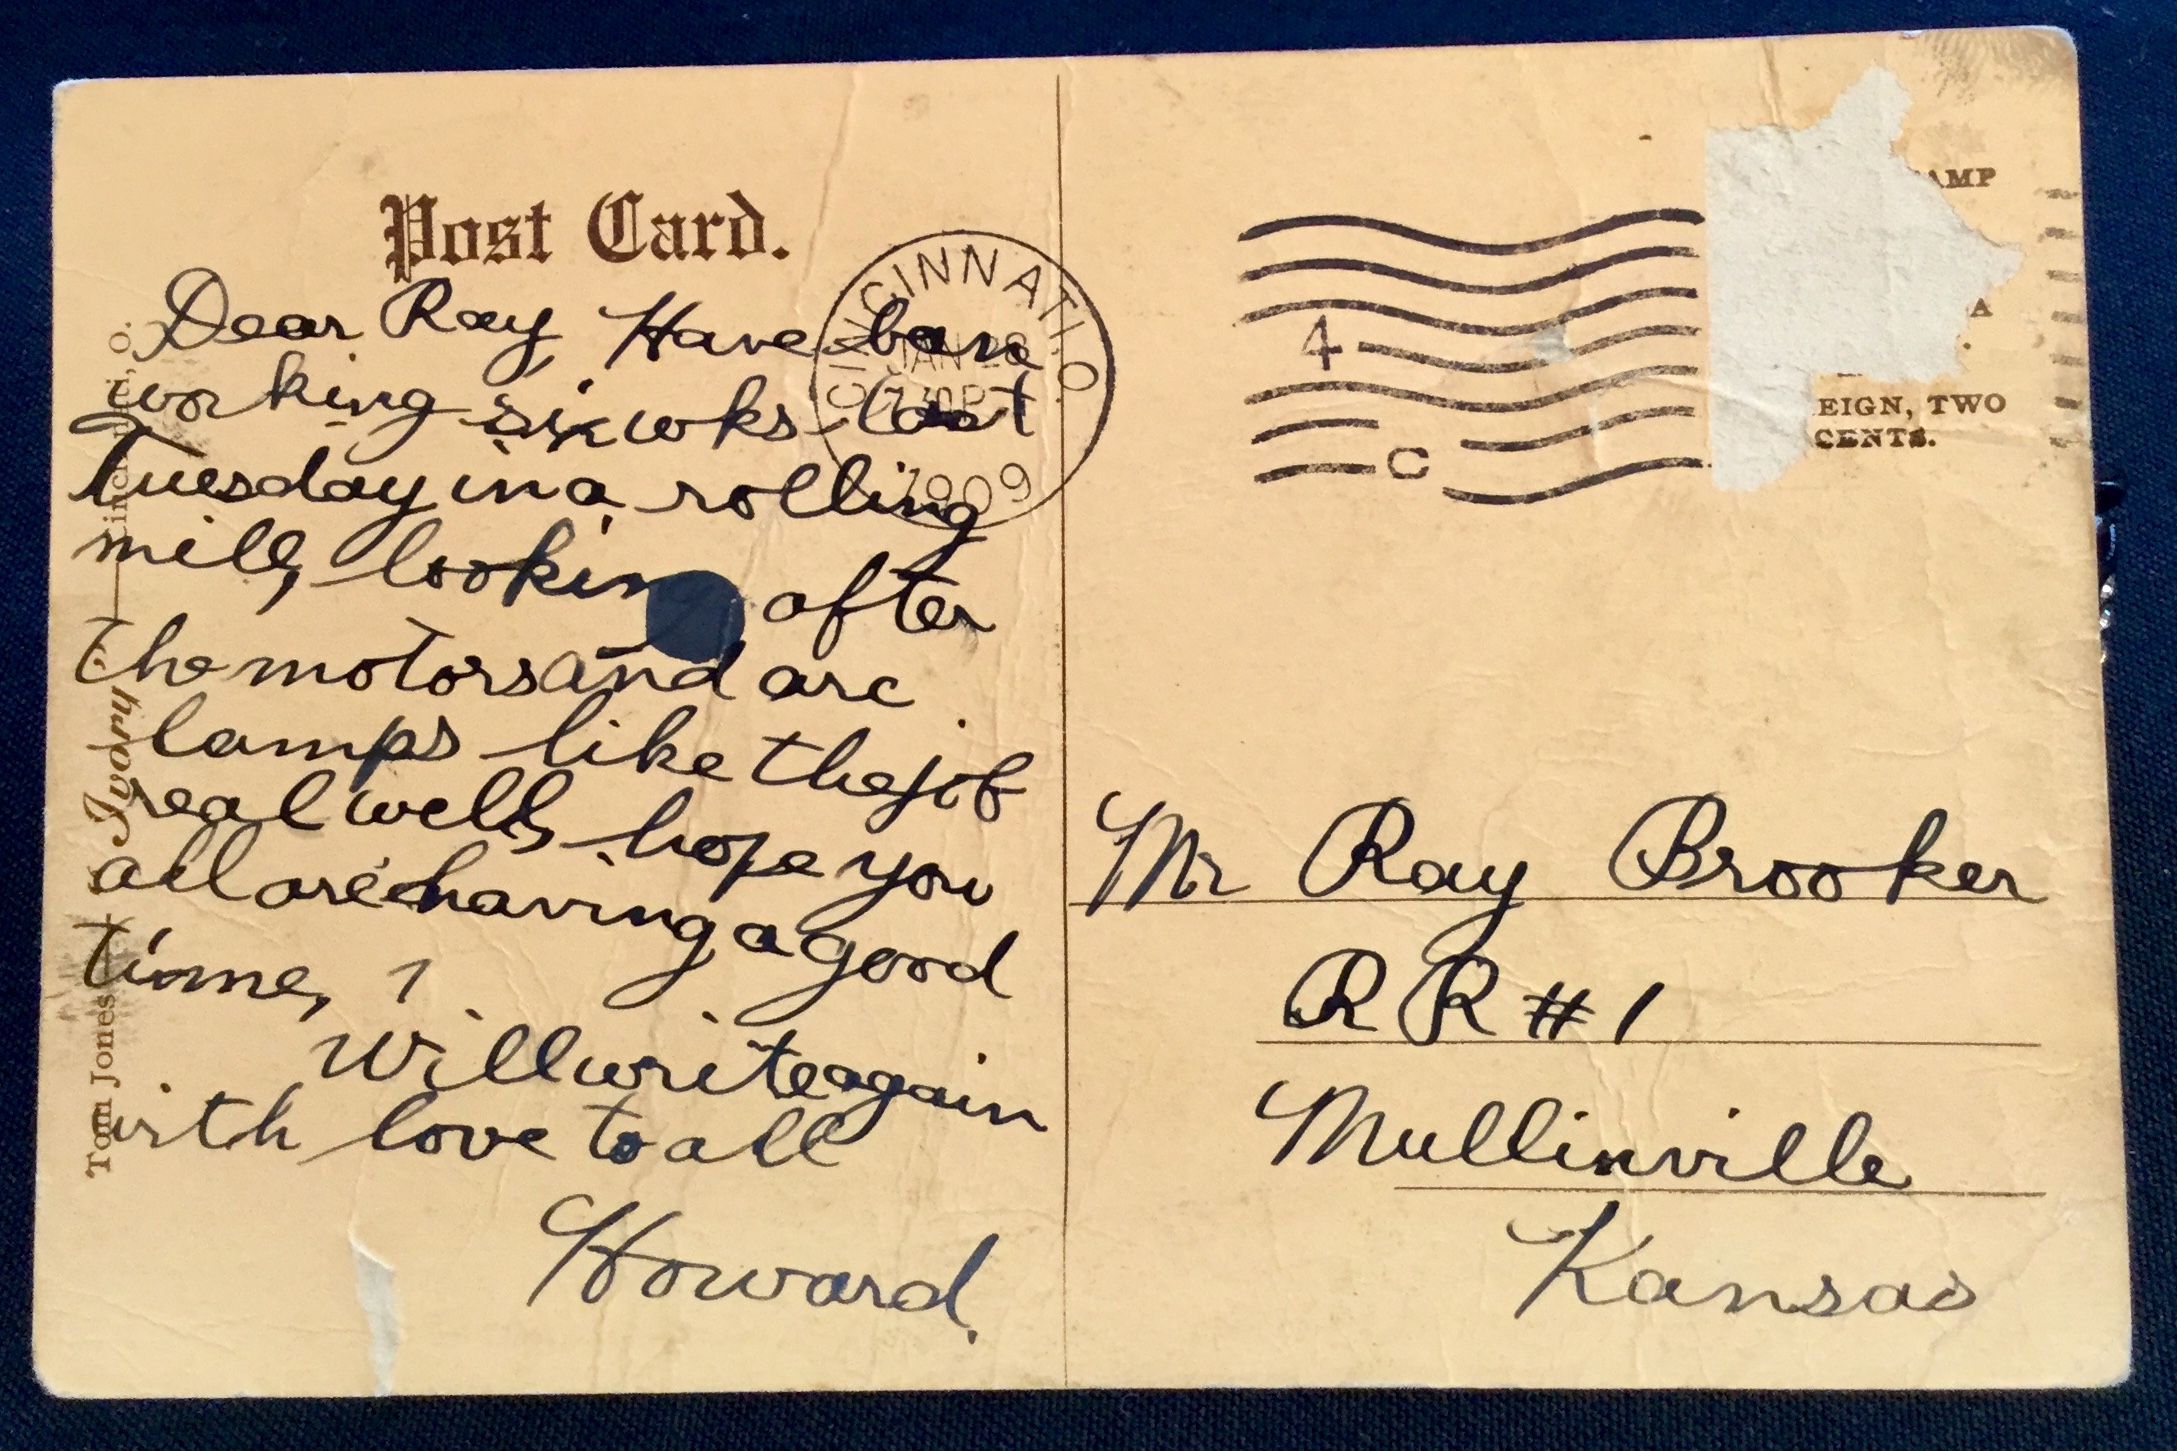 Post Card.
CINCINNATI, O.
JAN 28
7 30 P
1909
4
C
AMP
A
EIGN, TWO
CENTS.
Dear Ray, Have ban
working six wks last
Tuesday in a rolling
mill, lookin after
the motors and arc
lamps like the job
real well, hope you
all are having a good
time, 1
Will write again
with love to all
Howard.
Mr Ray Brooker
RR #1
Mullinville
Kansas
Tom Jones
Ivory